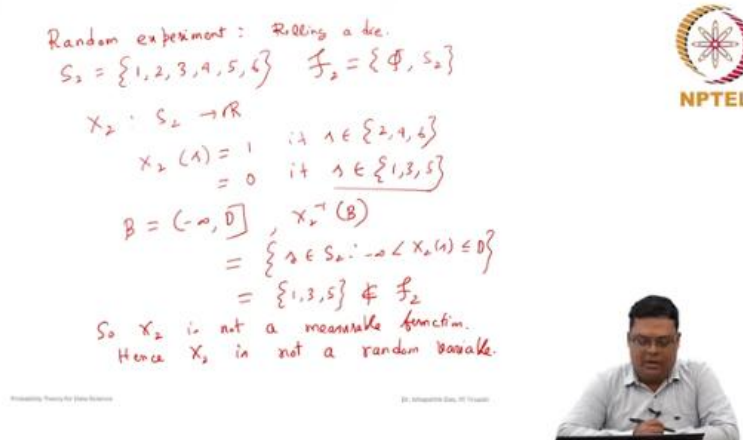 Random experiment: Rolling a die.
S₂ = {1, 2, 3, 4, 5, 6} 𝓕₂ = {Φ, S₂}
X₂ : S₂ → ℝ
X₂ (s) = 1 if s ∈ {2, 4, 6}
= 0 if s ∈ {1, 3, 5}
B = (-∞, 0] , X₂⁻¹ (B)
= {s ∈ S₂ : -∞ < X₂(s) ≤ 0}
= {1, 3, 5} ∉ 𝓕₂
So X₂ is not a measurable function.
Hence X₂ is not a random variable.
NPTEL
Probability Theory for Data Science